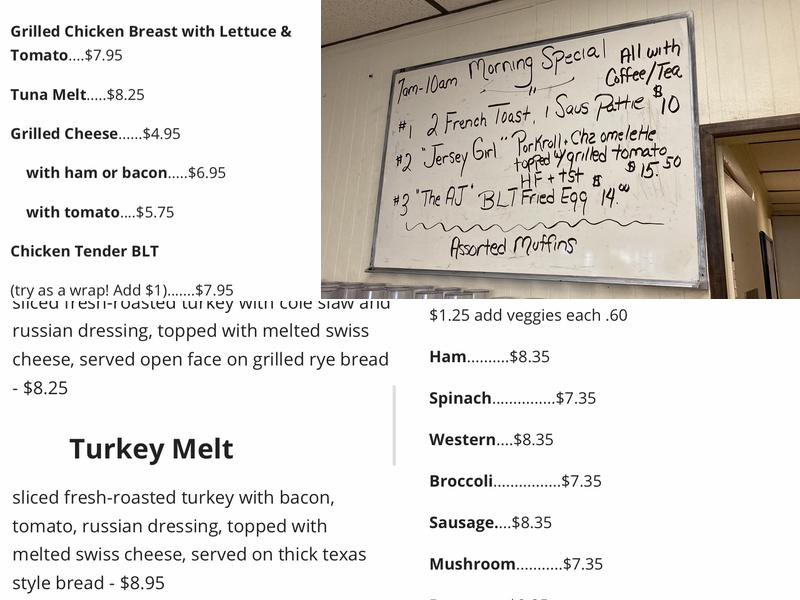 Grilled Chicken Breast with Lettuce &
Tomato....$7.95
Tuna Melt.....$8.25
Grilled Cheese......$4.95
with ham or bacon.....$6.95
with tomato....$5.75
Chicken Tender BLT
(try as a wrap! Add $1).......$7.95
7am-10am Morning Special
All with
Coffee/Tea
#1 2 French Toast, 1 Saus Pattie $10
#2 "Jersey Girl" PorkRoll + Chz omelette
topped w/grilled tomato
HF + tst $15.50
#3 "The AJ" BLT Fried Egg $14.00
Assorted Muffins
sliced fresh-roasted turkey with cole slaw and
russian dressing, topped with melted swiss
cheese, served open face on grilled rye bread
- $8.25
Turkey Melt
sliced fresh-roasted turkey with bacon,
tomato, russian dressing, topped with
melted swiss cheese, served on thick texas
style bread - $8.95
$1.25 add veggies each .60
Ham..........$8.35
Spinach...............$7.35
Western....$8.35
Broccoli................$7.35
Sausage....$8.35
Mushroom...........$7.35